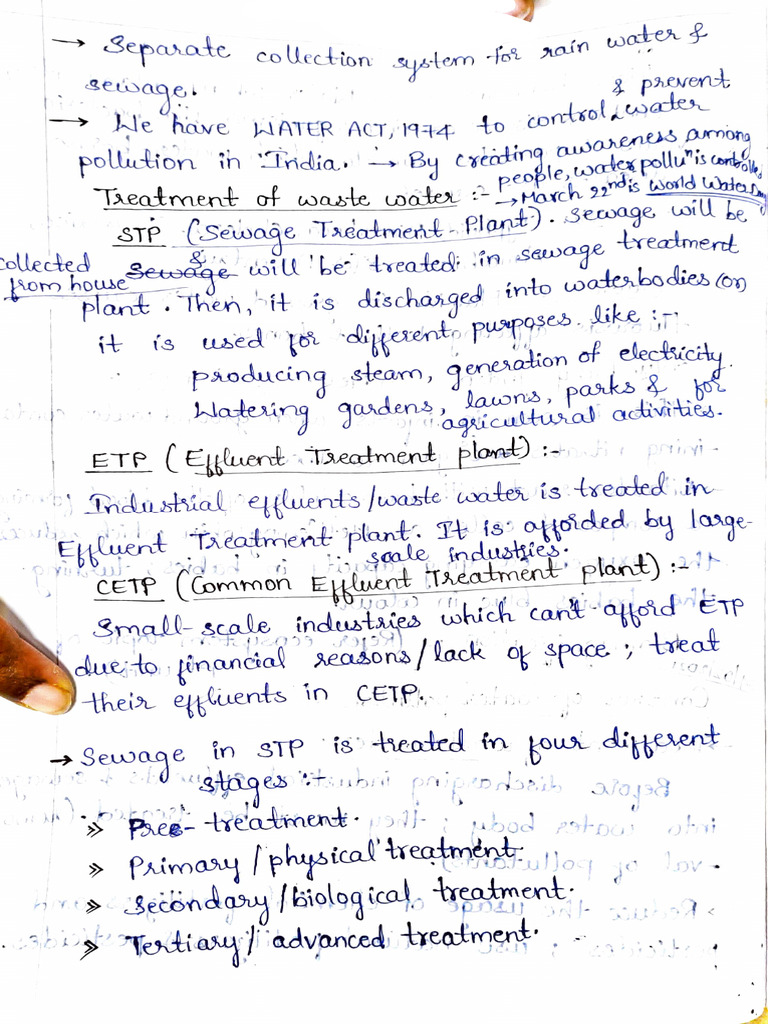 → Separate collection system for rain water &
sewage.
→ We have WATER ACT, 1974 to control & prevent water
pollution in India. → By creating awareness among
people, water polluⁿ is controlled
→ March 22nd is World Water Day
Treatment of waste water :-
STP (Sewage Treatment Plant). Sewage will be
collected from house & will be treated in sewage treatment
plant. Then, it is discharged into waterbodies (or)
it is used for different purposes like :-
producing steam, generation of electricity
Watering gardens, lawns, parks & for
agricultural activities.
ETP (Effluent Treatment plant) :-
Industrial effluents/waste water is treated in
Effluent Treatment plant. It is afforded by large-
scale industries.
CETP (Common Effluent Treatment plant) :-
Small-scale industries which can't afford ETP
due to financial reasons/lack of space ; treat
their effluents in CETP.
→ Sewage in STP is treated in four different
stages :-
» Pre- treatment.
» Primary/physical treatment.
» Secondary/biological treatment.
» Tertiary/ advanced treatment.